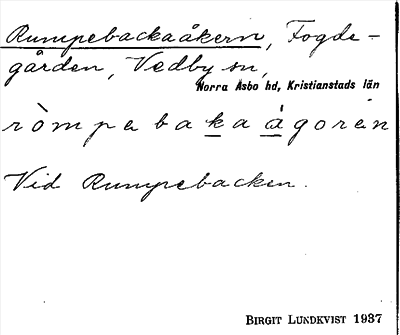 Rumpebackaåkern, Fogde-
gården, Vedby sn,
Norra Åsbo hd, Kristianstads län
ròmpabakaågorèn
Vid Rumpebacken.
BIRGIT LUNDKVIST 1937